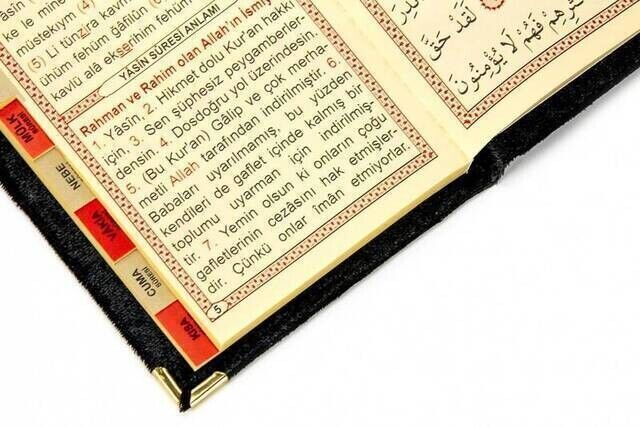 ke le mine
müstekıym (4)
(5) Li tünzira kavmen
ühüm fehüm ğâfilûn
kavlü alâ ekserihim fehüm
YÂSİN SÛRESİ ANLAMI
Rahman ve Rahim olan Allah'ın İsmiy
1. Yâsîn. 2. Hikmet dolu Kur'an hakkı
için. 3. Sen şüphesiz peygamberler-
densin. 4. Dosdoğru yol üzerindesin.
5. (Bu Kur'an) Gâlip ve çok merha-
metli Allah tarafından indirilmiştir. 6.
Babaları uyarılmamış, bu yüzden
kendileri de gaflet içinde kalmış bir
toplumu uyarman için indirilmiş-
tir. 7. Yemin olsun ki onların çoğu
gafletlerinin cezâsını hak etmişler-
dir. Çünkü onlar îmân etmiyorlar.
5
لَقَدْ حَقَّ
فَهُمْ لَا يُؤْمِنُونَ
MÜLK
SÛRESİ
NEBE
VÂKIA
CUMA
SÛRESİ
KISA